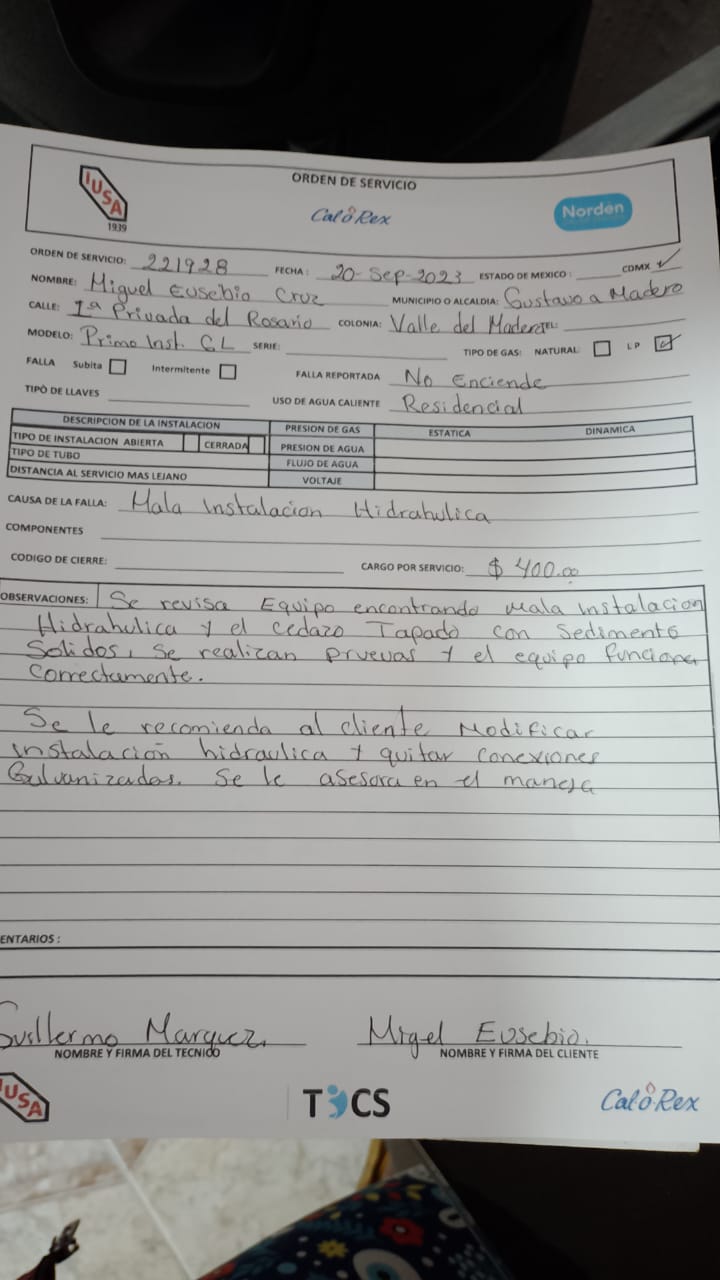 IUSA
1939
ORDEN DE SERVICIO
CalôRex
Nordën
ORDEN DE SERVICIO: 221928 FECHA: 20-Sep-2023 ESTADO DE MEXICO: CDMX ✓
NOMBRE: Miguel Eusebio Cruz MUNICIPIO O ALCALDIA: Gustavo a Madero
CALLE: 1ª Privada del Rosario COLONIA: Valle del Madero TEL:
MODELO: Primo Inst. GL SERIE: TIPO DE GAS: NATURAL L P ✓
FALLA Subita Intermitente FALLA REPORTADA No Enciende
TIPO DE LLAVES USO DE AGUA CALIENTE Residencial
DESCRIPCION DE LA INSTALACION PRESION DE GAS ESTATICA DINAMICA
TIPO DE INSTALACION ABIERTA CERRADA PRESION DE AGUA
TIPO DE TUBO FLUJO DE AGUA
DISTANCIA AL SERVICIO MAS LEJANO VOLTAJE
CAUSA DE LA FALLA: Mala Instalacion Hidrahulica
COMPONENTES
CODIGO DE CIERRE: CARGO POR SERVICIO: $ 400.00
OBSERVACIONES: Se revisa Equipo encontrando mala instalacion
Hidrahulica y el cedazo Tapado con Sedimento
Solidos, se realizan pruevas y el equipo funciona
correctamente.
Se le recomienda al cliente Modificar
instalación hidraulica y quitar conexiones
Galvanizadas. Se le asesora en el manejo
ENTARIOS :
Guillermo Marquez. Migel Eusebio.
NOMBRE Y FIRMA DEL TECNICO NOMBRE Y FIRMA DEL CLIENTE
IUSA
TYCS
CalôRex